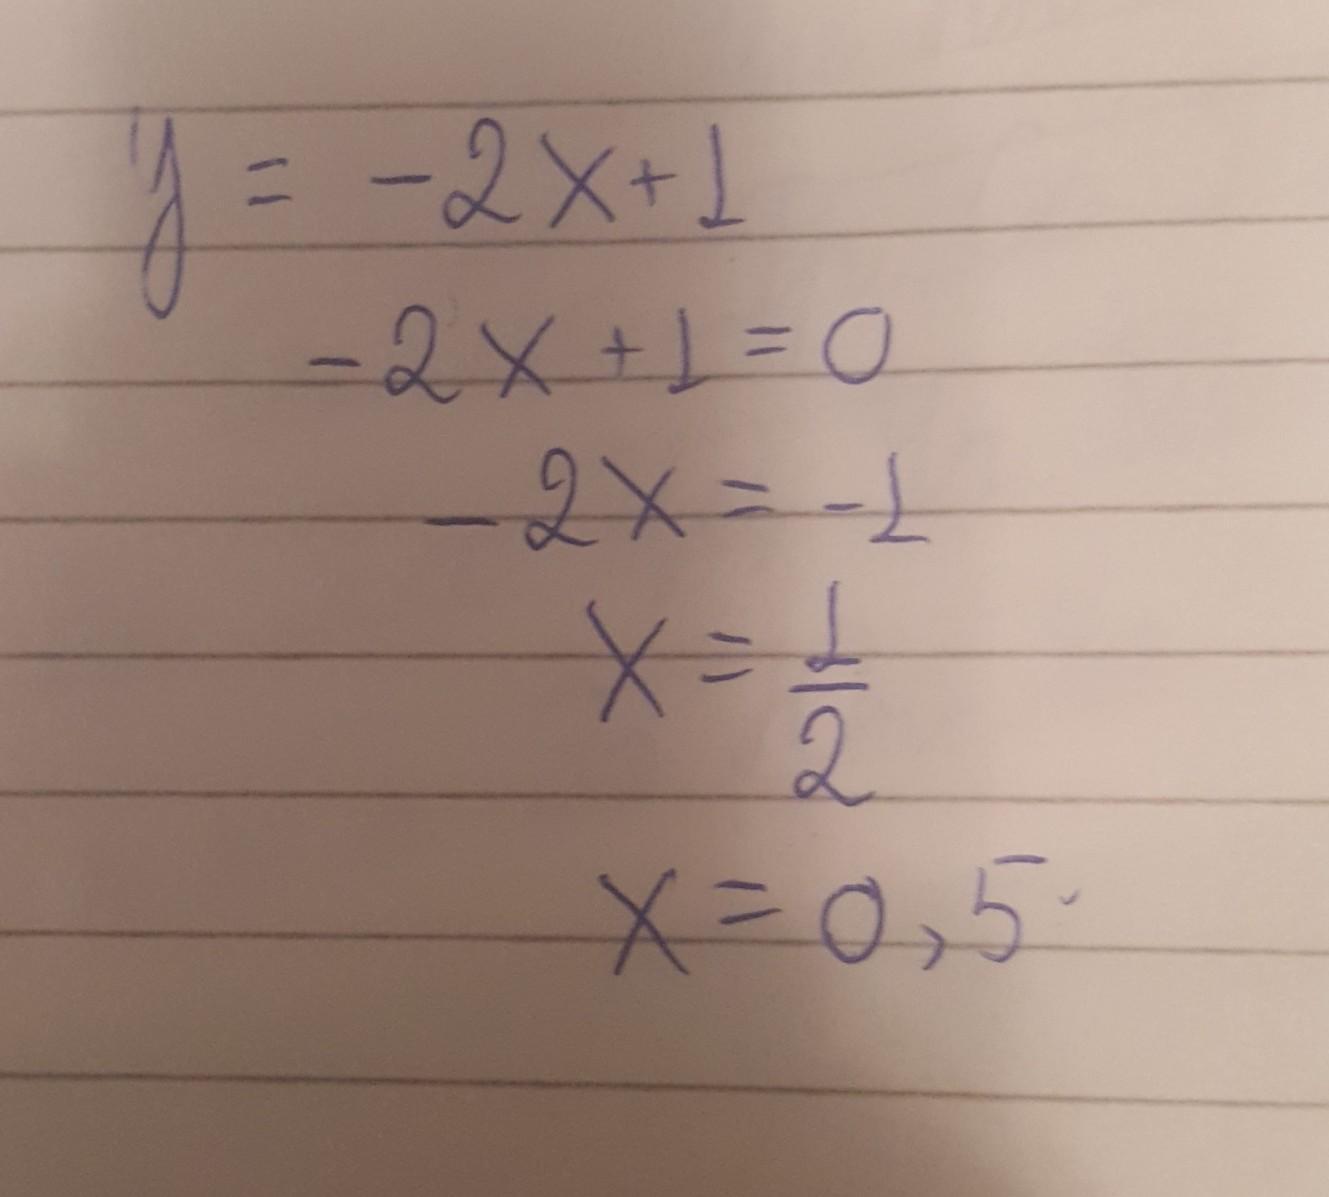 y = -2x+1
-2x+1=0
-2x=-1
x=1/2
x=0,5